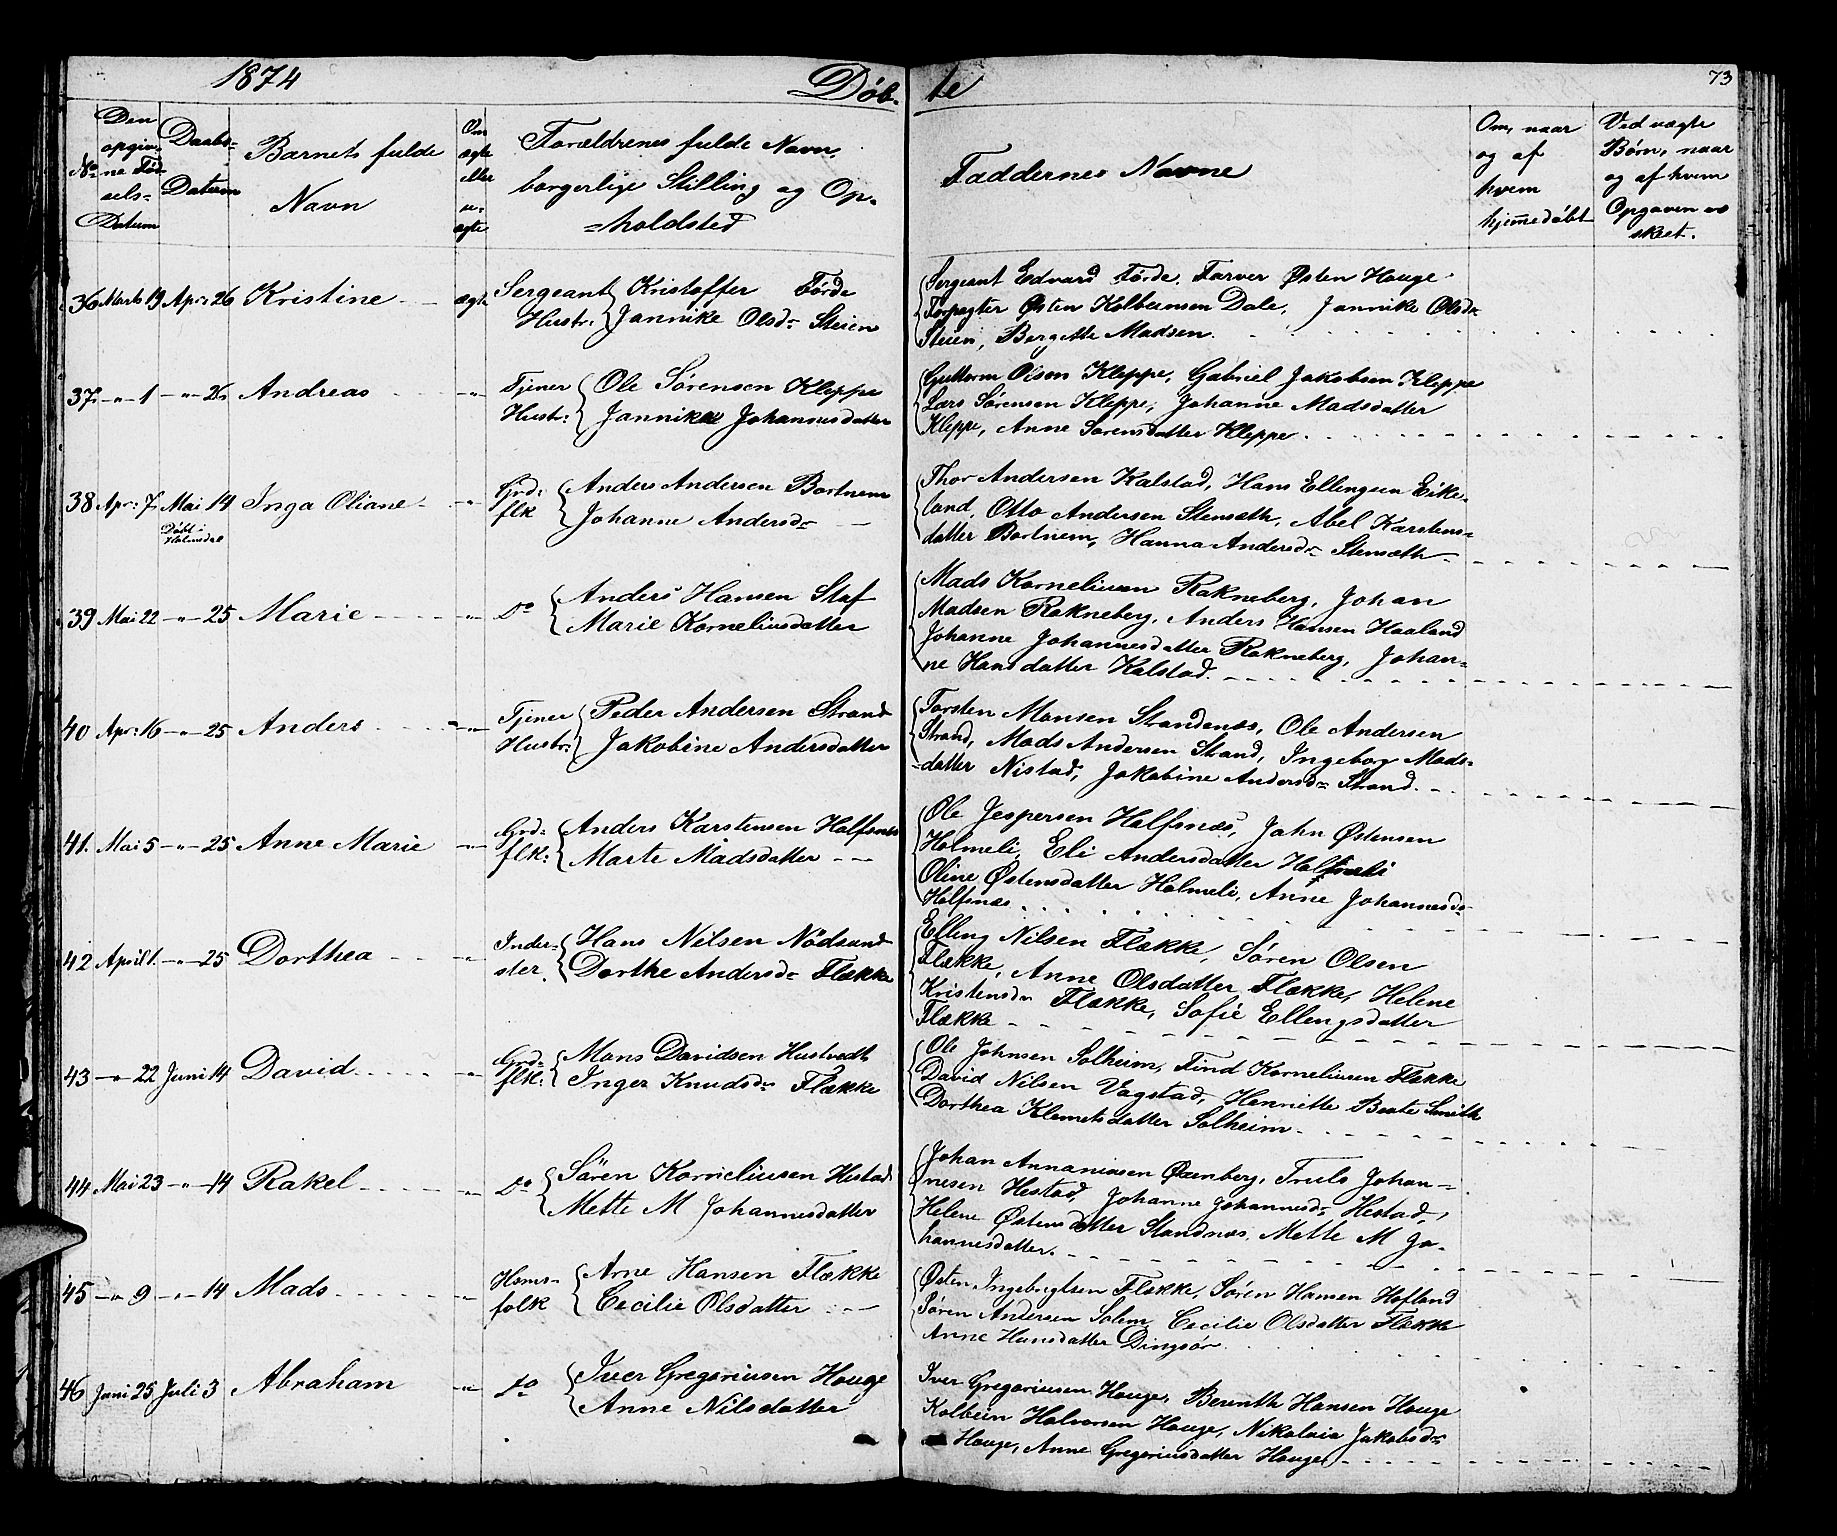 1874 Døb- te 73
No Den opgivne Fødsels-Datum
Daabs-Datum
Barnets fulde Navn
Om ægte eller uægte
Forældrenes fulde Navn, borgerlige Stilling og Op-
=holdsted
Faddernes Navne
Om, naar og af hvem hjemmedøbt
Ved uægte Børn, naar og af hvem Opgaven er skeet.
36 Marts 19 Apr: 26 Kristine ægt. Sergeant Kristoffer Førde
Hustr: Jannike Olsd= Steien
Sergeant Edvard Førde, Farver Østen Houge
Forpagter Østen Kolbeinsen Dale, Jannike Olsd=
Steien, Bergette Madsen.
37 -"- 1 -"- 26 Andreas -"- Tjener Ole Sørensen Kleppe
Hustr: Jannike Johannesdatter
Guttorm Olsen Kleppe, Gabriel Jakobsen Kleppe
Lars Sørensen Kleppe, Johanne Madsdatter
Kleppe, Anne Sørensdatter Kleppe.
38 Apr: 7 Mai 14 Inga Oliane -"- Grd: Anders Andersen Bortnem
Døbt i Holmedal
flk Johanne Andersd=
Thor Andersen Kalstad, Hans Ellingsen Eike-
land, Otto Andersen Stensæth, Abel Karstens=
datter Bortnem, Hanna Andersd= Stensæth
39 Mai 22 -"- 25 Marie -"- Do Anders Hansen Staf
Marie Korneliusdatter
Mads Korneliusen Rakneberg, Johan
Madsen Rakneberg, Anders Hansen Haaland
Johanne Johannesdatter Rakneberg, Johan=
ne Hansdatter Kalstad.
40 Apr: 16 -"- 25 Anders -"- Tjener Peder Andersen Strand
Hustr: Jakobine Andersdatter
Torsten Monsen Strandenæs, Ole Andersen
Strand, Mads Andersen Strand, Ingeborg Mads=
=datter Nistad, Jakobine Andersd= Strand.
41. Mai 5 -"- 25 Anne Marie -"- Grd= Anders Karstensen Halfsnæs
flk: Marte Madsdatter
Ole Jespersen Halfsnæs, John Østensen
Holmeli, Eli Andersdatter
Oline Østensdatter Holmeli, Anne Johannesd=
Halfsnæs
42 April 1. -"- 25 Dorthea -"- Inder- Hans Nilsen Nødsund
ster. Dorthe Andersd= Flække
Elling Nilsen Flække, Søren Olsen
Flække, Anne Olsdatter Flække, Helene
Kristensd= Flække, Sofie Ellingsdatter
Flække
43 -"- 22 Juni 14 David -"- Grd= Mons Davidsen Hustvedt
flk: Inger Knudsd= Flække
Ole Johnsen Solheim, Find Korneliusen Flække
David Nilsen Vagstad, Henriette Beate Smith
Dorthea Klemetsdatter Solheim
44 Mai 23 -"- 14 Rakel -"- Do Søren Korneliusen Hestad
Mette M Johannesdatter
Johan Annaniasen Øxenberg, Truls Johan-=
nesen Hestad, Johanne Johannesd= Hestad,
Helene Østensdatter Standnæs, Mette M Jo-
hannesdatter.
45 -"- 9 -"- 14 Mads -"- Hsms- Arne Hansen Flække
folk Cecilie Olsdatter
Østen Ingebrigtsen Flække, Søren Hansen Hofland
Søren Andersen Solem, Cecilie Olsdatter Flække
Anne Hansdatter Dingsør
46 Juni 25 Juli 3 Abraham -"- Do Iver Gregoriusen Houge
Anne Nilsdatter
Iver Gregoriusen Houge, Berenth Hansen Houge
Kolbein Halvorsen Houge, Nikolaia Jakobsd=
Houge, Anne Gregoriusdatter Houge